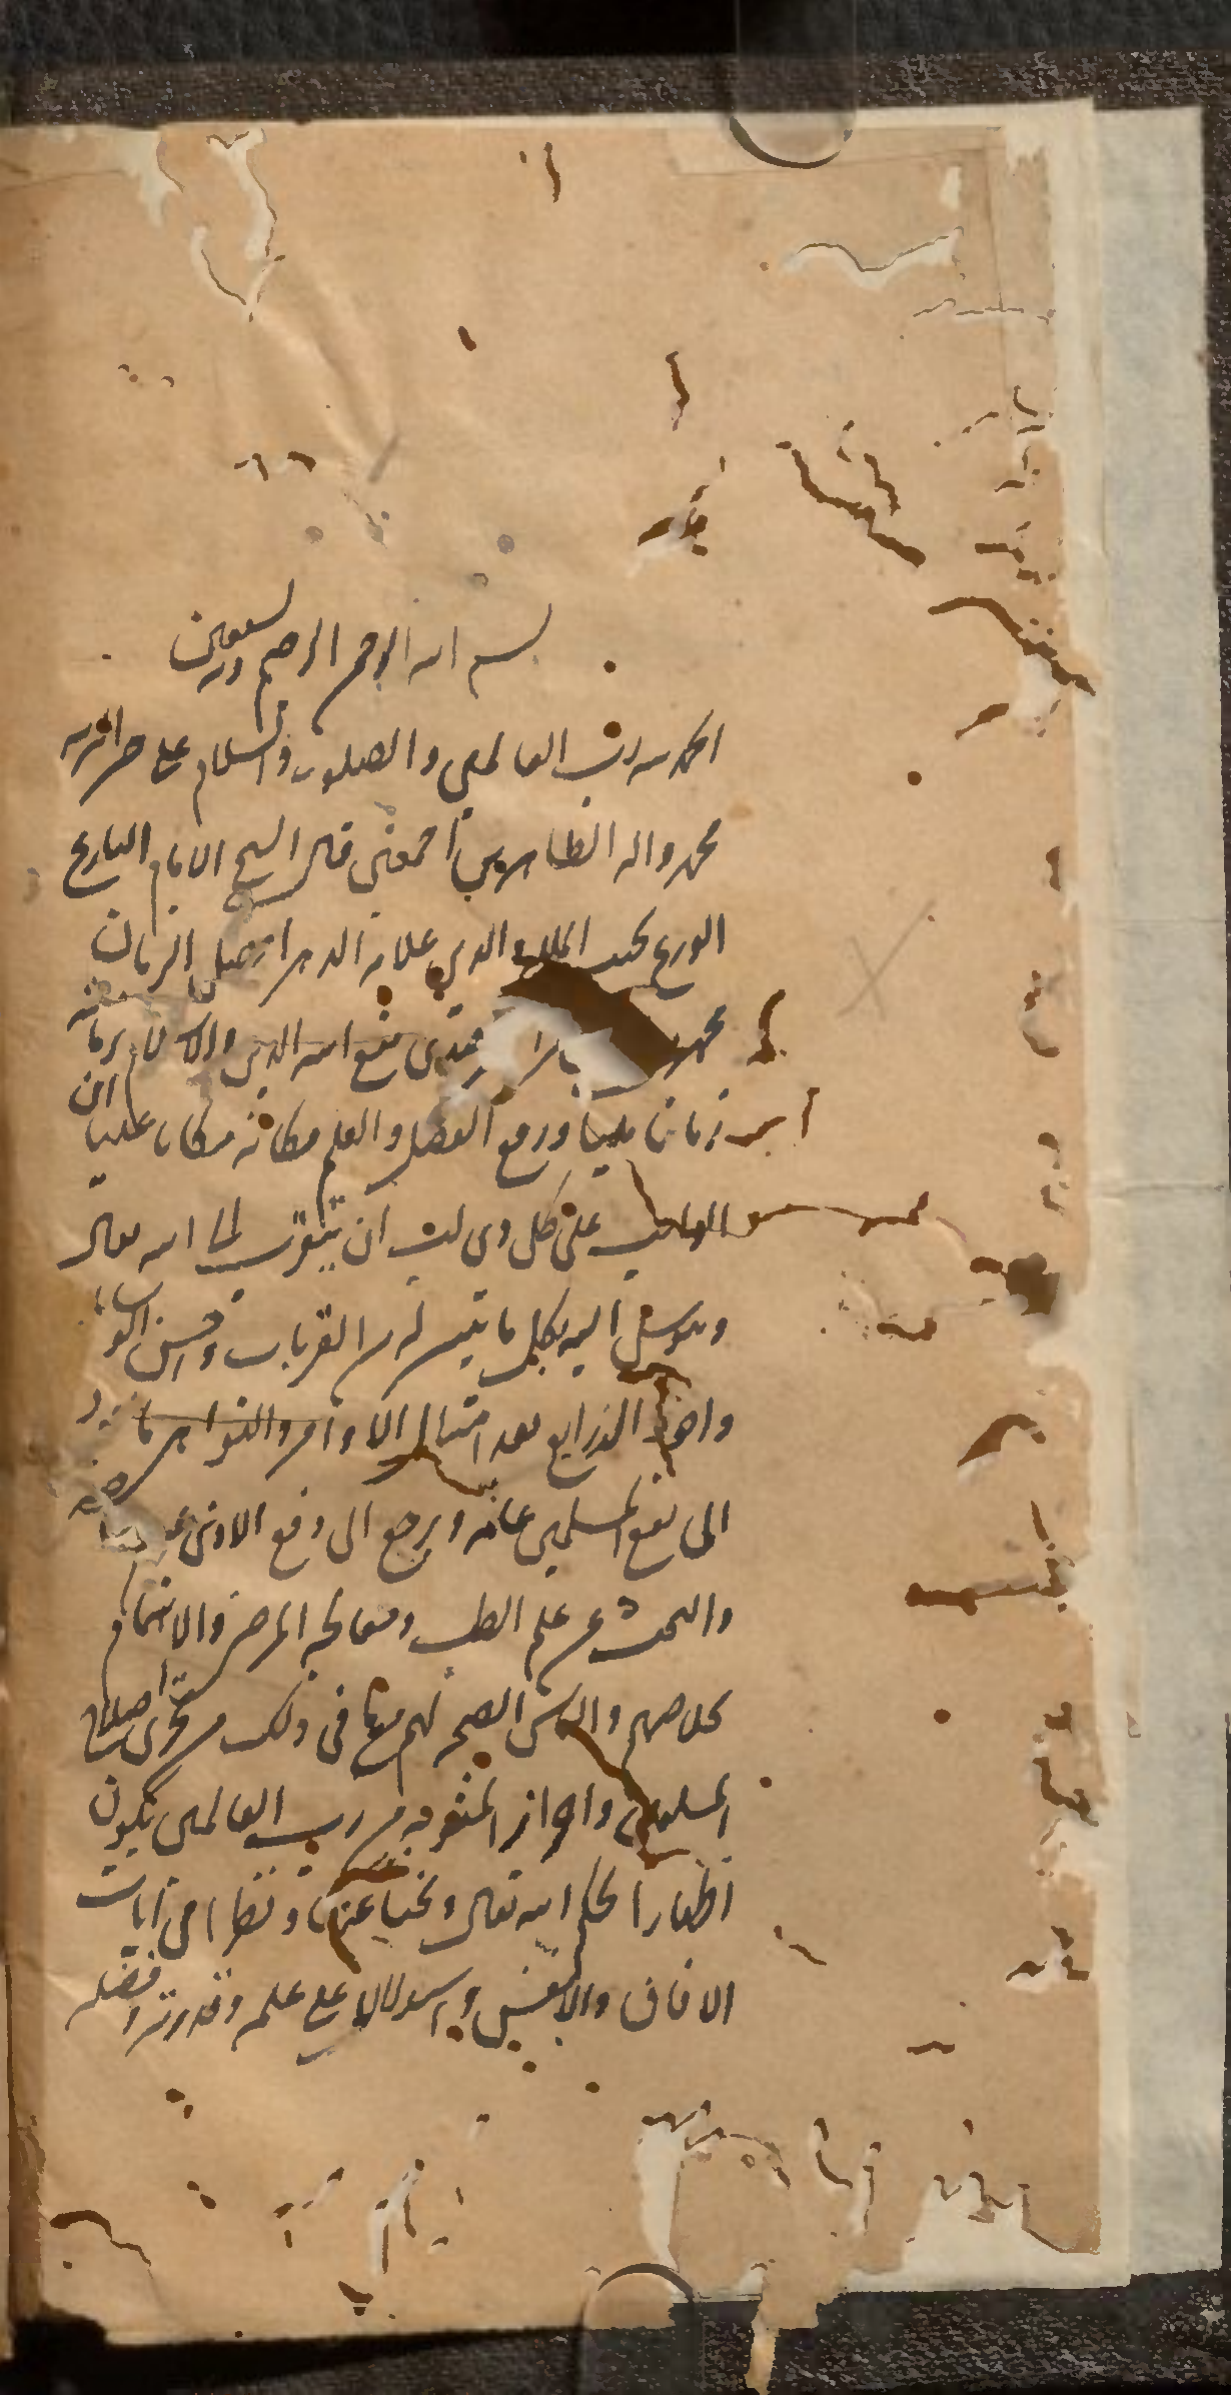 بسم الله الرحمن الرحيم وبه نستعين
الحمد لله رب العالمين والصلوة والسلام على خير البرية
محمد واله الطاهرين اجمعين قال الشيخ الامام البارع
الورع نجيب الملة والدين علامة الدهر افضل الزمان
محمد السمرقندى متع الله الدين والاسلام بزمانه
زمانا مليا ورفع الفضل والعلم مكانة مكانا عليا ان
الواجب على كل ذى لب ان يتقرب الى الله تعالى
ويتوسل اليه بكل ما تيسر له من القربات واحسن الوسائل
الذرايع بعد امتثال الاوامر والنواهى ما يعود
الى نفع المسلمين عامة ويرجع الى دفع الاذى
والبحث عن علم الطب ومعالجة المرضى والاهتمام
بخلاصهم والتماس الصحة لهم معا فى ذلك من تحرى اصلاح
المسلمين واحراز المثوبة من رب العالمين يكون
اظهارا لحكم الله تعالى ونظرا فى آيات
الافاق والانفس واستدلالا على علمه وقدرته وفضله